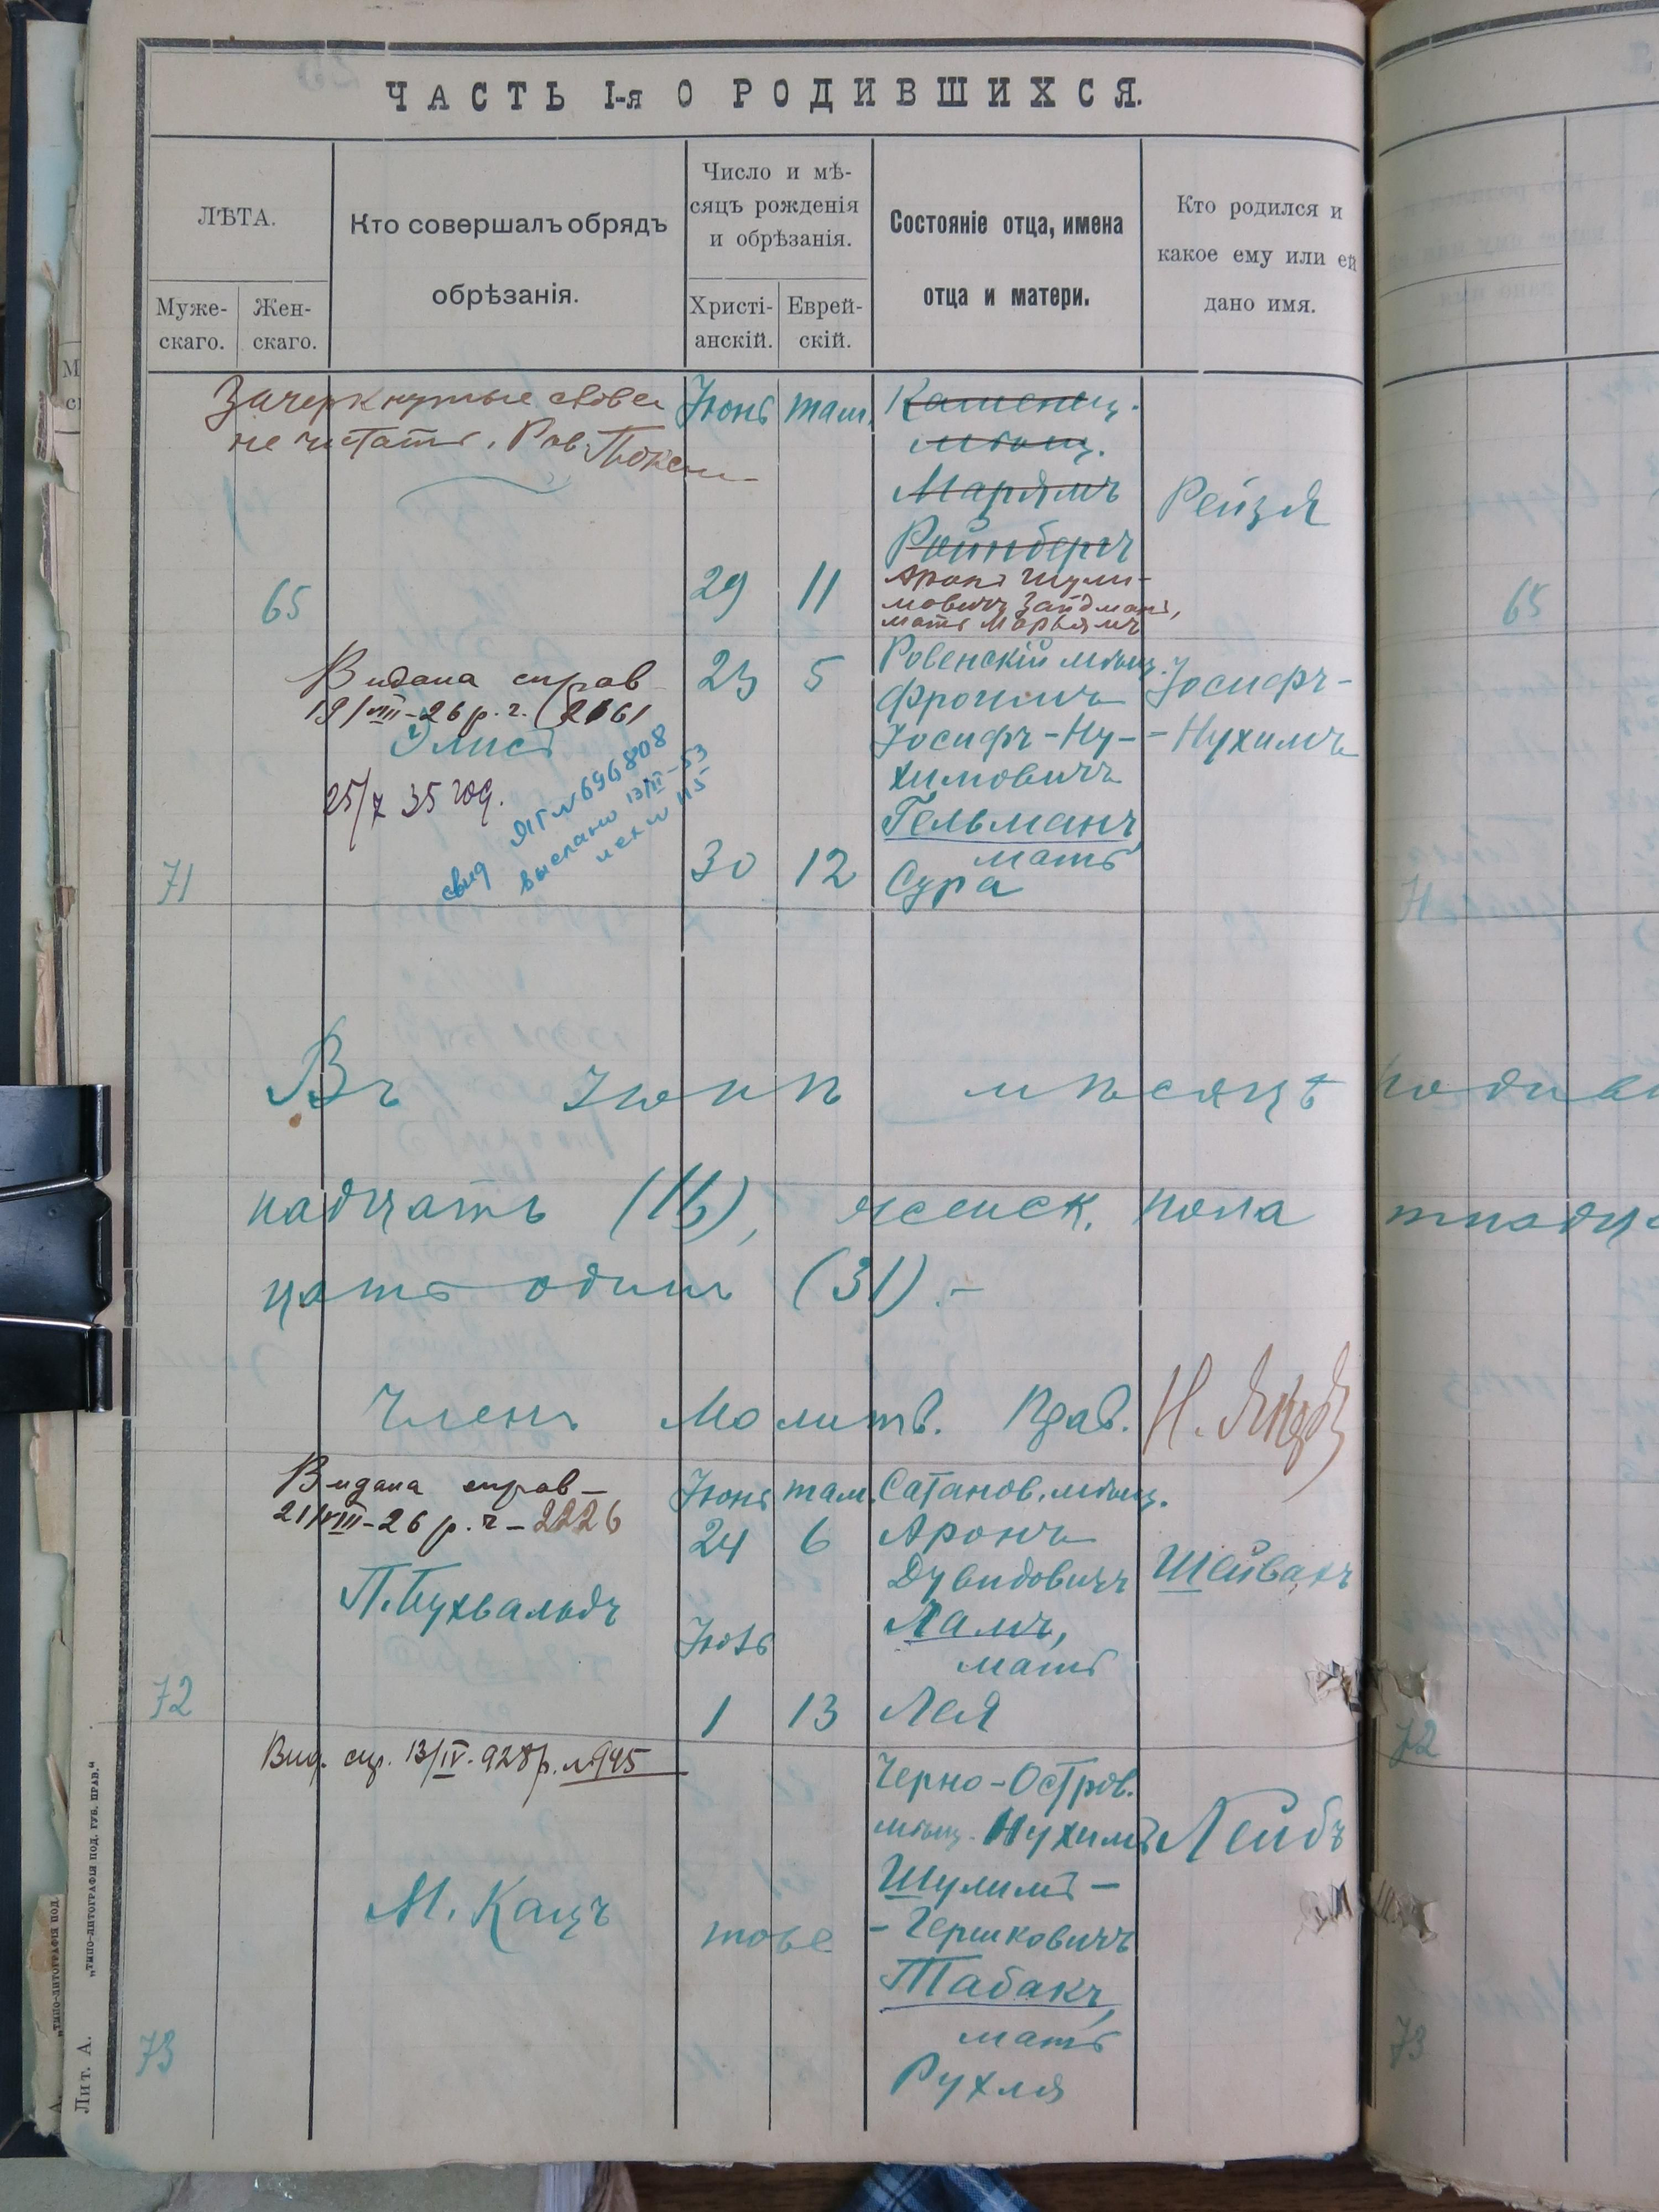 ЧАСТЬ I-я О РОДИВШИХСЯ.
ЛѢТА.
Муже-
скаго.
Жен-
скаго.
Кто совершалъ обрядъ
обрѣзанія.
Число и мѣ-
сяцъ рожденія
и обрѣзанія.
Христі-
анскій.
Еврей-
скій.
Состояніе отца, имена
отца и матери.
Кто родился и
какое ему или ей
дано имя.
Зачеркнутые слова
не читать. Рав.
Іюнь
там.
Каменец.
мѣщ.
Марьямъ
Ройнбергъ
65
29
11
Аронъ Шули-
мовичъ Зайдманъ,
мать Марьямъ
Рейзя
65
Видана справ
19/VIII-26 р. ч. (2161
Элисъ
25/7 35 год.
свид ЯГ № 696808
выслано 13/III-53
исх № 115
71
23
5
30
12
Ровенскій мѣщ.
Фроимъ
Іосифъ-Ну-
химовичъ
Гельманъ,
мать
Сура
Іосифъ-
-Нухимъ
Въ Іюнѣ мѣсяцѣ
надцать (16), женск. пола
цать одинъ (31).-
Членъ Молитв. Прав.
Видана справ-
21/VIII-26 р. ч-2226
П. Бухвальдъ
72
Іюнь
24
Іюль
1
там.
6
13
Сатанов. мѣщ.
Аронъ
Дувидовичъ
Ламъ,
мать
Лея
Шейвахъ
72
Вид. сп. 13/IV. 928 р. № 945
М. Кацъ
73
тоже
Черно-Остров.
мѣщ. Нухимъ
Шулимъ-
-Гершковичъ
Табакъ,
мать
Рухля
Лейбъ
73
Лит. А.
„ТИПО-ЛИТОГРАФІЯ ПОД. ГУБ. ПРАВ.“